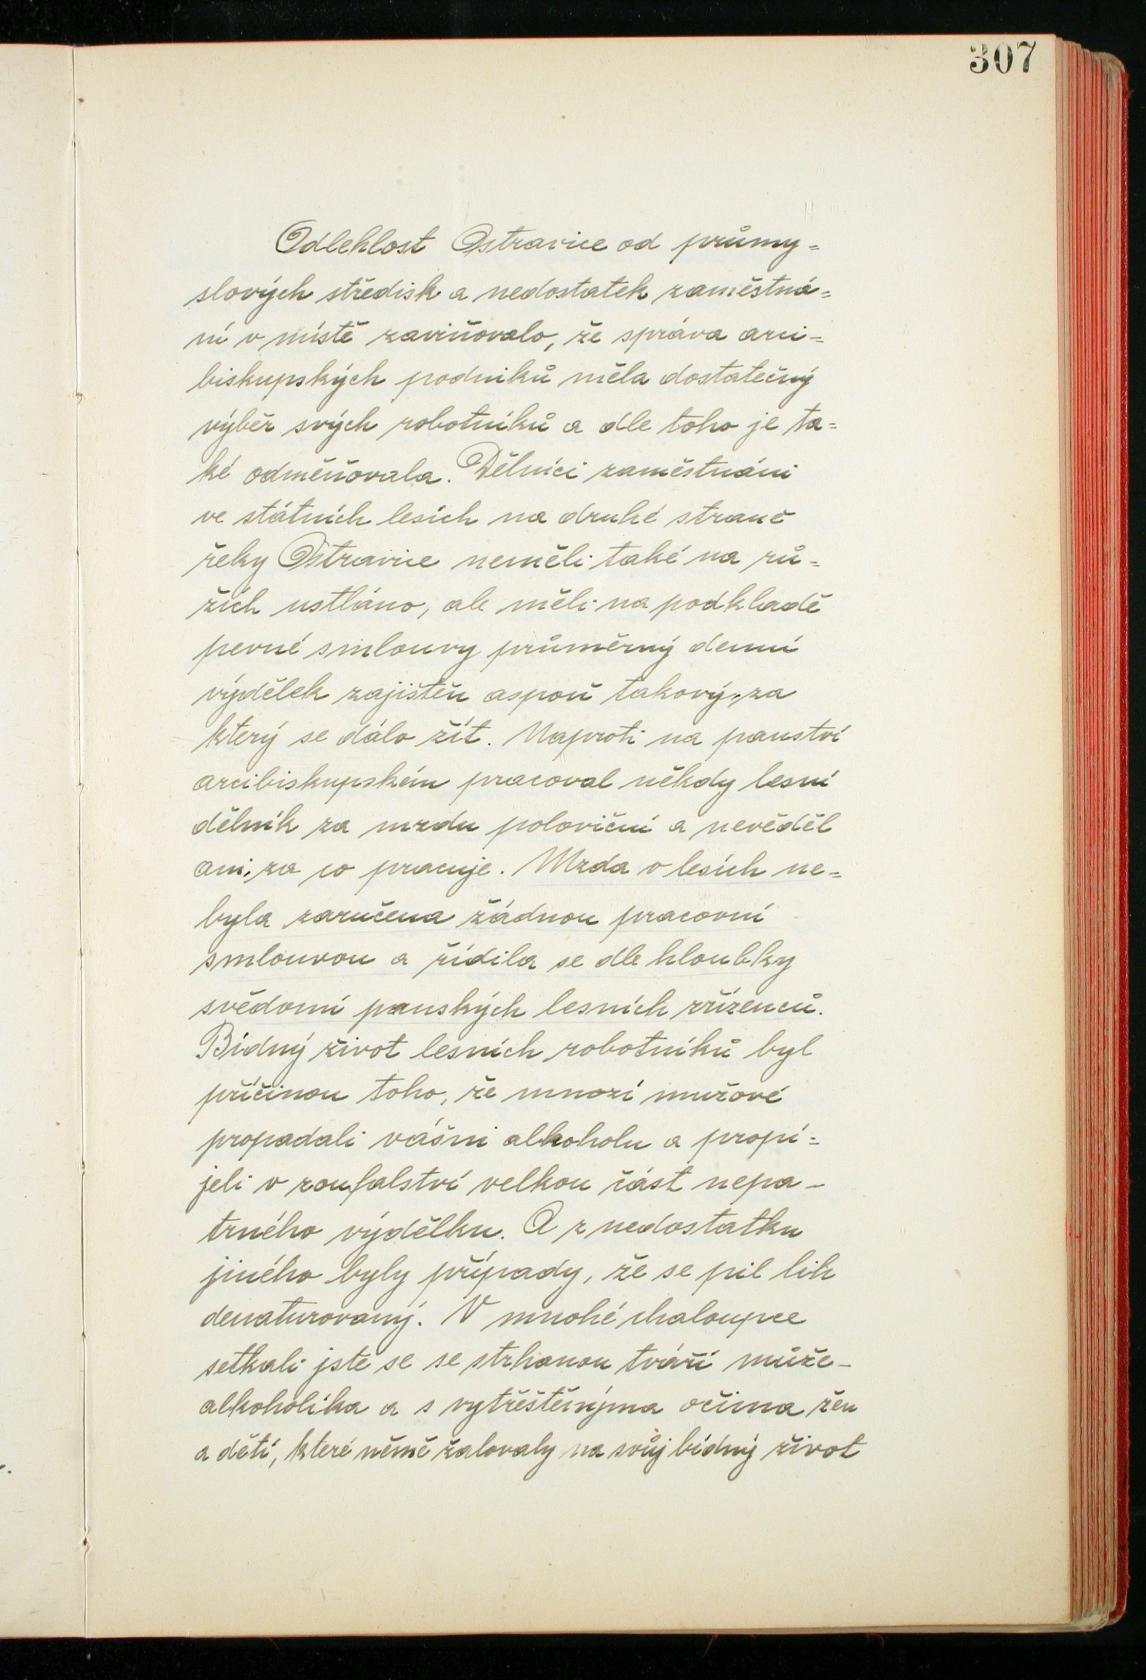 307
Odlehlost Ostravice od průmy=
slových středisk a nedostatek zaměstná=
ní v místě zaviňovalo, že správa arci=
biskupských podniků měla dostatečný
výběr svých robotníků a dle toho je ta=
ké odměňovala. Dělníci zaměstnáni
ve státních lesích na druhé straně
řeky Ostravice neměli také na rů=
žích ustláno, ale měli na podkladě
pevné smlouvy průměrný denní
výdělek zajištěn aspoň takový, za
který se dálo žít. Naproti na panství
arcibiskupském pracoval někdy lesní
dělník za mzdu poloviční a nevěděl
ani, za co pracuje. Mzda v lesích ne=
byla zaručena žádnou pracovní
smlouvou a řídila se dle hloubky
svědomí panských lesních zřízenců.
Bídný život lesních robotníků byl
příčinou toho, že mnozí mužové
propadali vášni alkoholu a propí=
jeli v zoufalství velkou část nepa-
trného výdělku. A z nedostatku
jiného byly případy, že se pil líh
denaturovaný. V mnohé chaloupce
setkali jste se se strhanou tváří muže-
alkoholika a s vytřeštěnýma očima žen
a dětí, které němě žalovaly na svůj bídný život